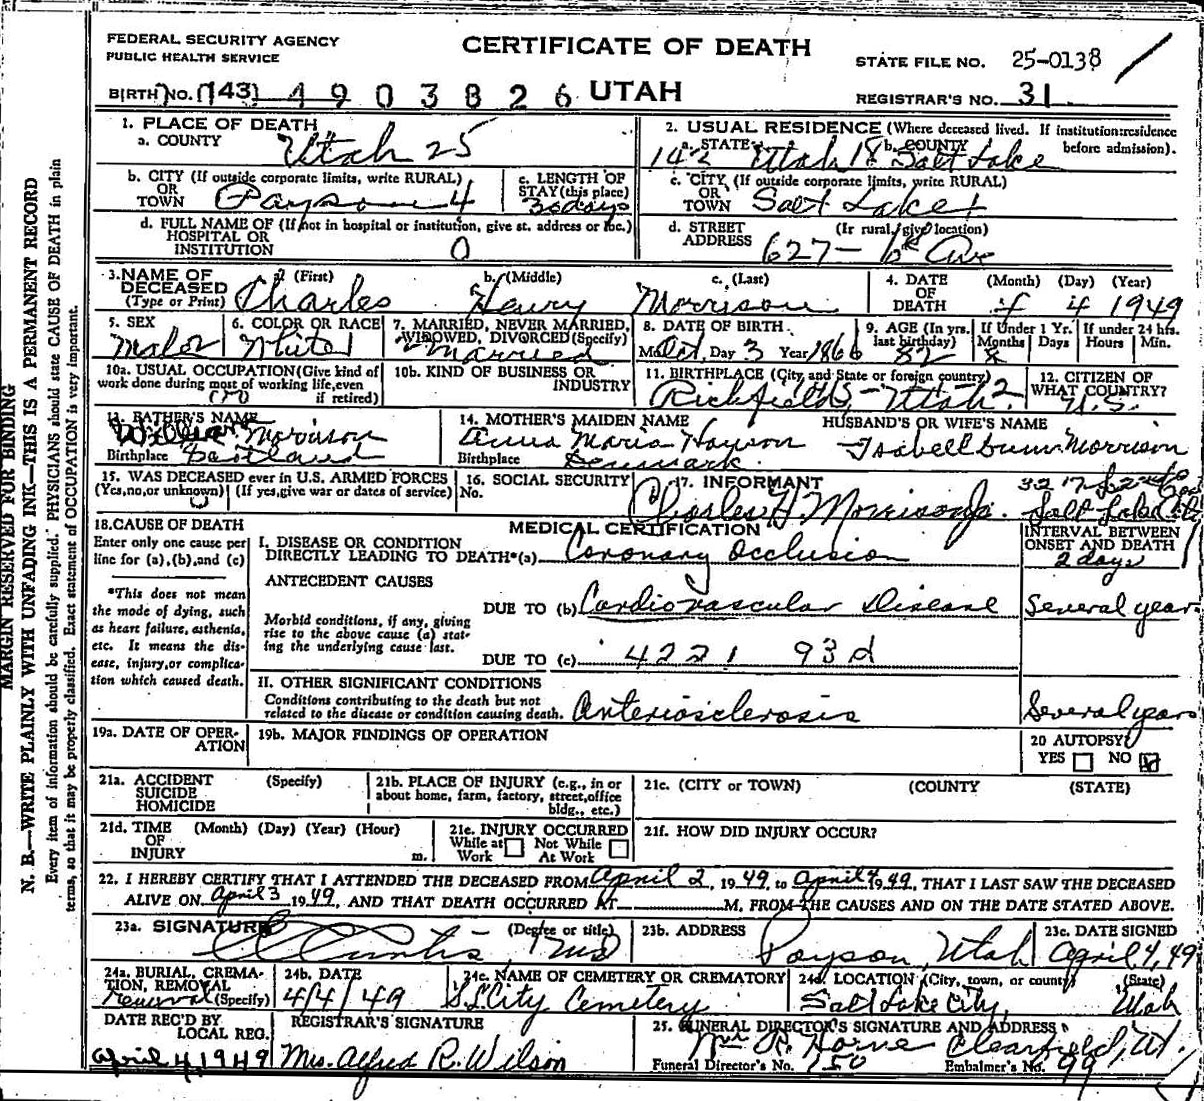 FEDERAL SECURITY AGENCY
PUBLIC HEALTH SERVICE
CERTIFICATE OF DEATH
UTAH
STATE FILE NO. 25-0138
BIRTH NO. (143) 4903826
REGISTRAR'S NO. 31
1. PLACE OF DEATH
a. COUNTY Utah 25
2. USUAL RESIDENCE (Where deceased lived. If institution:residence before admission).
a. STATE 142 Utah 18 b. COUNTY Salt Lake
b. CITY (If outside corporate limits, write RURAL) OR TOWN Payson 4
c. LENGTH OF STAY (this place) 30 days
c. CITY (If outside corporate limits, write RURAL) OR TOWN Salt Lake 1
d. FULL NAME OF (If not in hospital or institution, give st. address or loc.) HOSPITAL OR INSTITUTION 0
d. STREET ADDRESS (If rural, give location) 627- Ave
3. NAME OF DECEASED (Type or Print)
a. (First) Charles b. (Middle) Henry c. (Last) Morrison
4. DATE OF DEATH (Month) (Day) (Year) 4 4 1949
5. SEX Male
6. COLOR OR RACE White
7. MARRIED, NEVER MARRIED, WIDOWED, DIVORCED (Specify) Married
8. DATE OF BIRTH Mo. Oct. Day 3 Year 1866
9. AGE (In yrs. last birthday) 82
If Under 1 Yr. Months Days
If under 24 hrs. Hours Min.
10a. USUAL OCCUPATION (Give kind of work done during most of working life, even if retired)
10b. KIND OF BUSINESS OR INDUSTRY
11. BIRTHPLACE (City, and State or foreign country) Richfield, Utah
12. CITIZEN OF WHAT COUNTRY? U.S.
13. FATHER'S NAME William Morrison
Birthplace Scotland
14. MOTHER'S MAIDEN NAME Anna Maria
Birthplace Denmark.
HUSBAND'S OR WIFE'S NAME Isabell Dunn Morrison
15. WAS DECEASED ever in U.S. ARMED FORCES
(Yes, no, or unknown) (If yes, give war or dates of service)
16. SOCIAL SECURITY No.
17. INFORMANT Charles H Morrison Jr. 3217 Salt Lake
18. CAUSE OF DEATH
Enter only one cause per line for (a), (b), and (c)
*This does not mean the mode of dying, such as heart failure, asthenia, etc. It means the disease, injury, or complication which caused death.
MEDICAL CERTIFICATION
INTERVAL BETWEEN ONSET AND DEATH
I. DISEASE OR CONDITION DIRECTLY LEADING TO DEATH*(a) Coronary Occlusion 2 days
ANTECEDENT CAUSES
Morbid conditions, if any, giving rise to the above cause (a) stating the underlying cause last.
DUE TO (b) Cardiovascular Disease Several years
DUE TO (c) 4221 93d
II. OTHER SIGNIFICANT CONDITIONS
Conditions contributing to the death but not related to the disease or condition causing death. Arteriosclerosis Several years
19a. DATE OF OPERATION
19b. MAJOR FINDINGS OF OPERATION
20 AUTOPSY?
YES NO
21a. ACCIDENT SUICIDE HOMICIDE (Specify)
21b. PLACE OF INJURY (e.g., in or about home, farm, factory, street, office bldg., etc.)
21c. (CITY OR TOWN) (COUNTY) (STATE)
21d. TIME OF INJURY (Month) (Day) (Year) (Hour) m.
21e. INJURY OCCURRED
While at Work Not While At Work
21f. HOW DID INJURY OCCUR?
22. I HEREBY CERTIFY THAT I ATTENDED THE DECEASED FROM April 2, 1949, to April 4 1949, THAT I LAST SAW THE DECEASED
ALIVE ON April 3 1949, AND THAT DEATH OCCURRED AT M, FROM THE CAUSES AND ON THE DATE STATED ABOVE.
23a. SIGNATURE Curtis MD (Degree or title)
23b. ADDRESS Payson, Utah
23c. DATE SIGNED April 4, 49
24a. BURIAL, CREMATION, REMOVAL (Specify) removal
24b. DATE 4/4/49
24c. NAME OF CEMETERY OR CREMATORY S.L. City Cemetery
24d. LOCATION (City, town, or county) (State) Salt Lake City, Utah
DATE REC'D BY LOCAL REG. April 4, 1949
REGISTRAR'S SIGNATURE Mrs. Alfred R. Wilson
25. FUNERAL DIRECTOR'S SIGNATURE AND ADDRESS Wm R. Horne Clearfield, Ut.
Funeral Director's No. 750 Embalmer's No. 99
MARGIN RESERVED FOR BINDING
N. B.—WRITE PLAINLY WITH UNFADING INK—THIS IS A PERMANENT RECORD
Every item of information should be carefully supplied. PHYSICIANS should state CAUSE OF DEATH in plain
terms, so that it may be properly classified. Exact statement of OCCUPATION is very important.